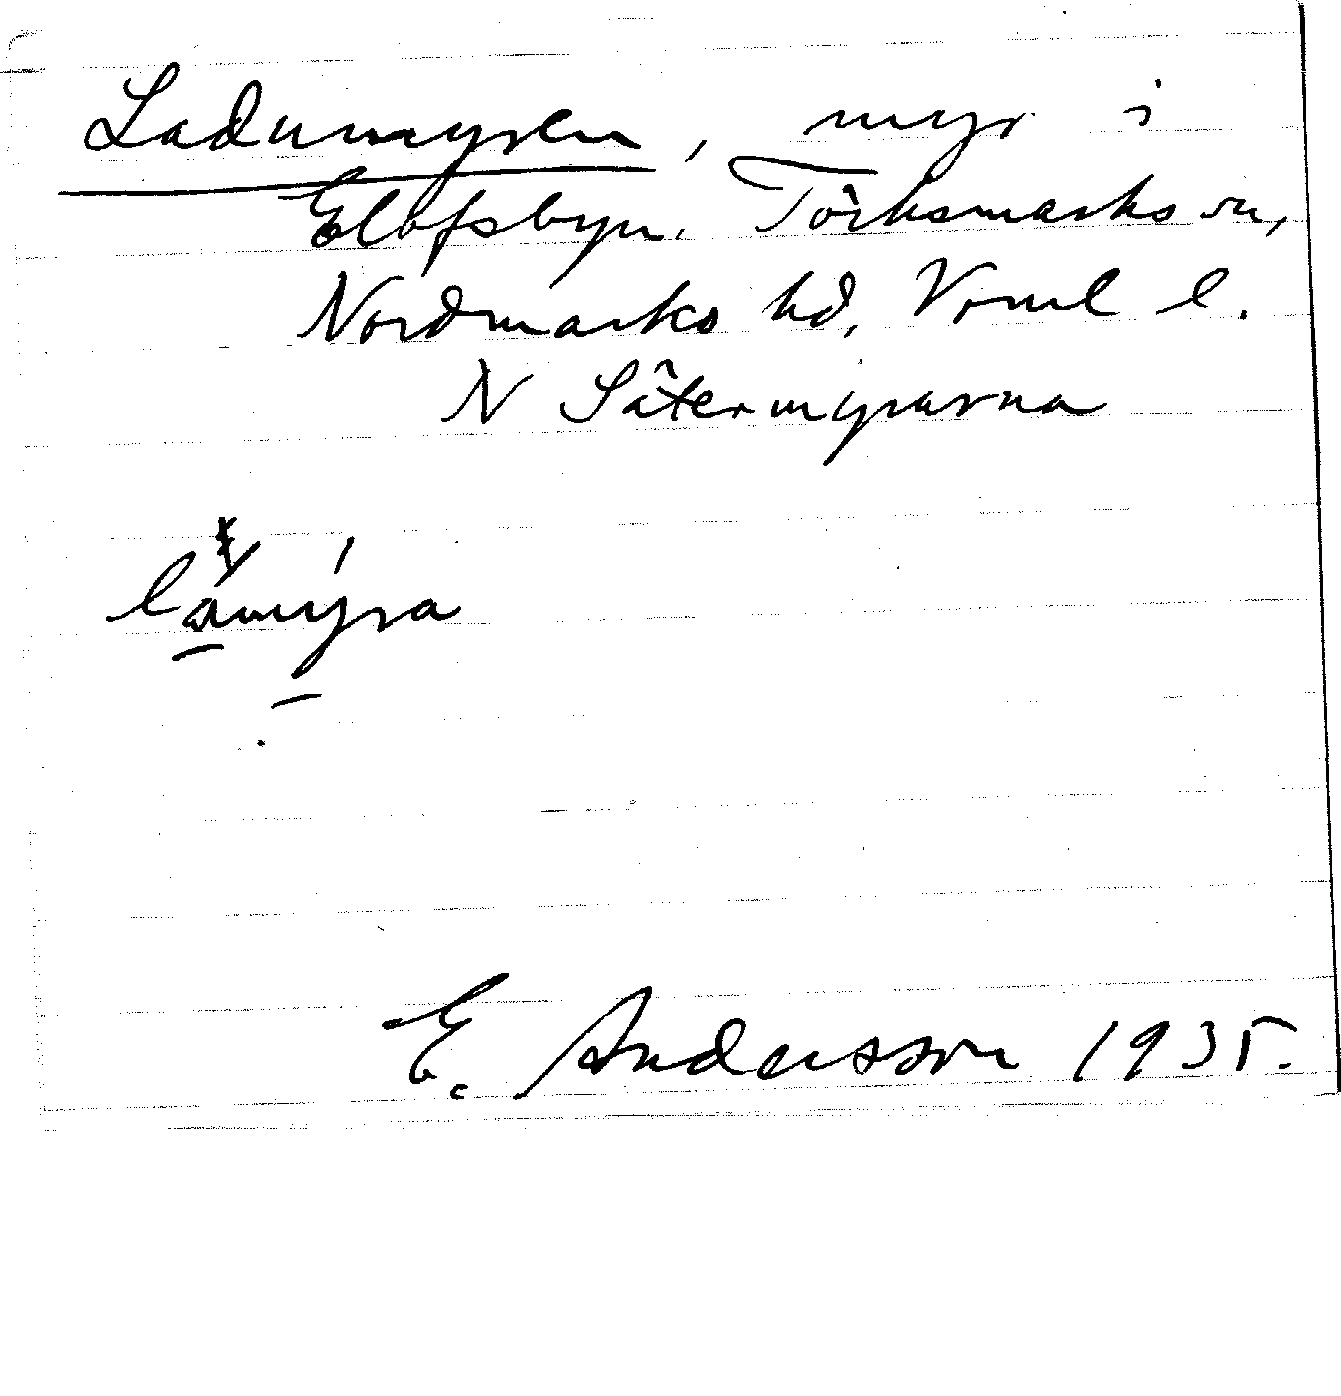 Ladumyren, myr i
Elofsbyn. Torksmarks sn,
Nordmarks hd, Vrml l.
N Sätermyrarna
lamýra
E. Andersson 1935.